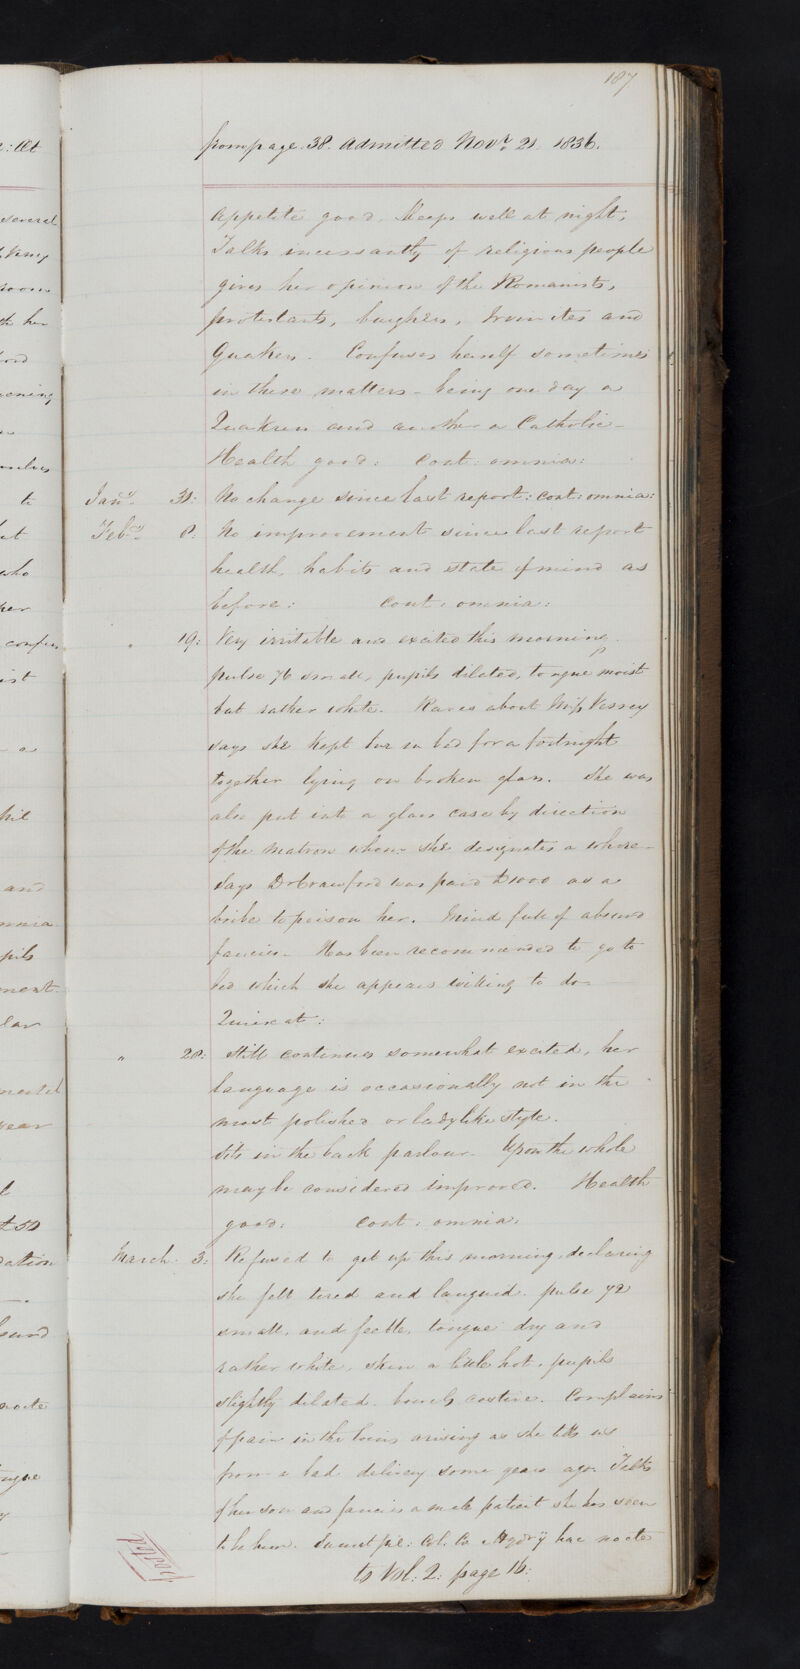 187
from page. 38. Admitted Novr. 21. 1836.
appetite good. Sleeps well at night,
Talks incessantly of religious people
gives her opinion of the Romanists,
protestants, burghers, Irvinites and
Quakers. Confuses herself sometimes
in these matters - being one day a
Quakress and another a Catholic -
Health good: Cont: omnia:
Jany. 31: No change since last report: cont: omnia:
Feby. 8: No improvement since last report
health, habits and state of mind as
before: Cont: omnia:
" 19: Very irritable and excited this morning
pulse 76 small, pupils dilated, tongue moist
but rather white. Raves about Miss Vessey
says she kept her in bed for a fortnight
together lying on broken glass. She was
also put into a glass case by direction
of the matron whom she designates a whore -
Says Dr Crawford was paid £1000 as a
bribe to poison her. Mind full of absurd
fancies - Has been recommended to go to
bed which she appears willing to do -
Quiescat:
" 28: Still continues somewhat excited, her
language is occasionally not in the
most polished or ladylike style.
Sits in the back parlour - Upon the whole
may be considered improved. Health
good: Cont: omnia:
March. 3: Refused to get up this morning, declaring
she felt tired and languid. pulse 72
small, and feeble, tongue dry and
rather white, skin a little hot, pupils
slightly dilated. bowels costive. Complains
of pain in the loins arising as she tells us
from a bad delivery some years ago. Talks
of her son and fancies a male patient she has seen
to be him. Sumat pil: Col. Co hac nocte
to Vol: 2: page 16:
posted
several
room
her
who
her
to
a
and
pils
£50
nocte